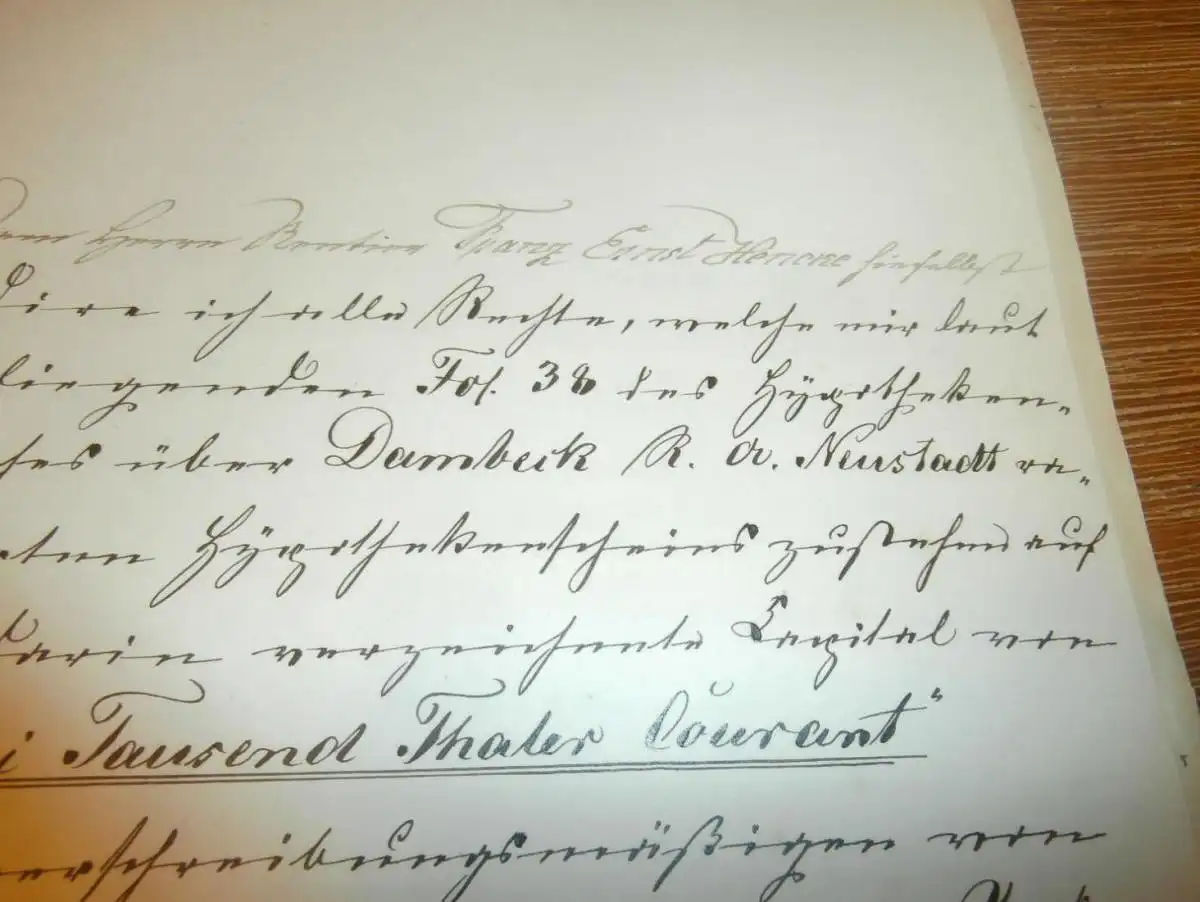 Dem Herrn Rentier Franz Ernst Hencke hieselbst
dire ich alle Rechte, welche mir laut
liegenden Fol. 38 des Hÿpotheken-
hes über Dambeck R. A. Neustadt va-
ten Hÿpothekenscheins zustehen auf
darin verzeichnete Capital von
i Tausend Thaler Courant"
verschreibungsmäßigen von